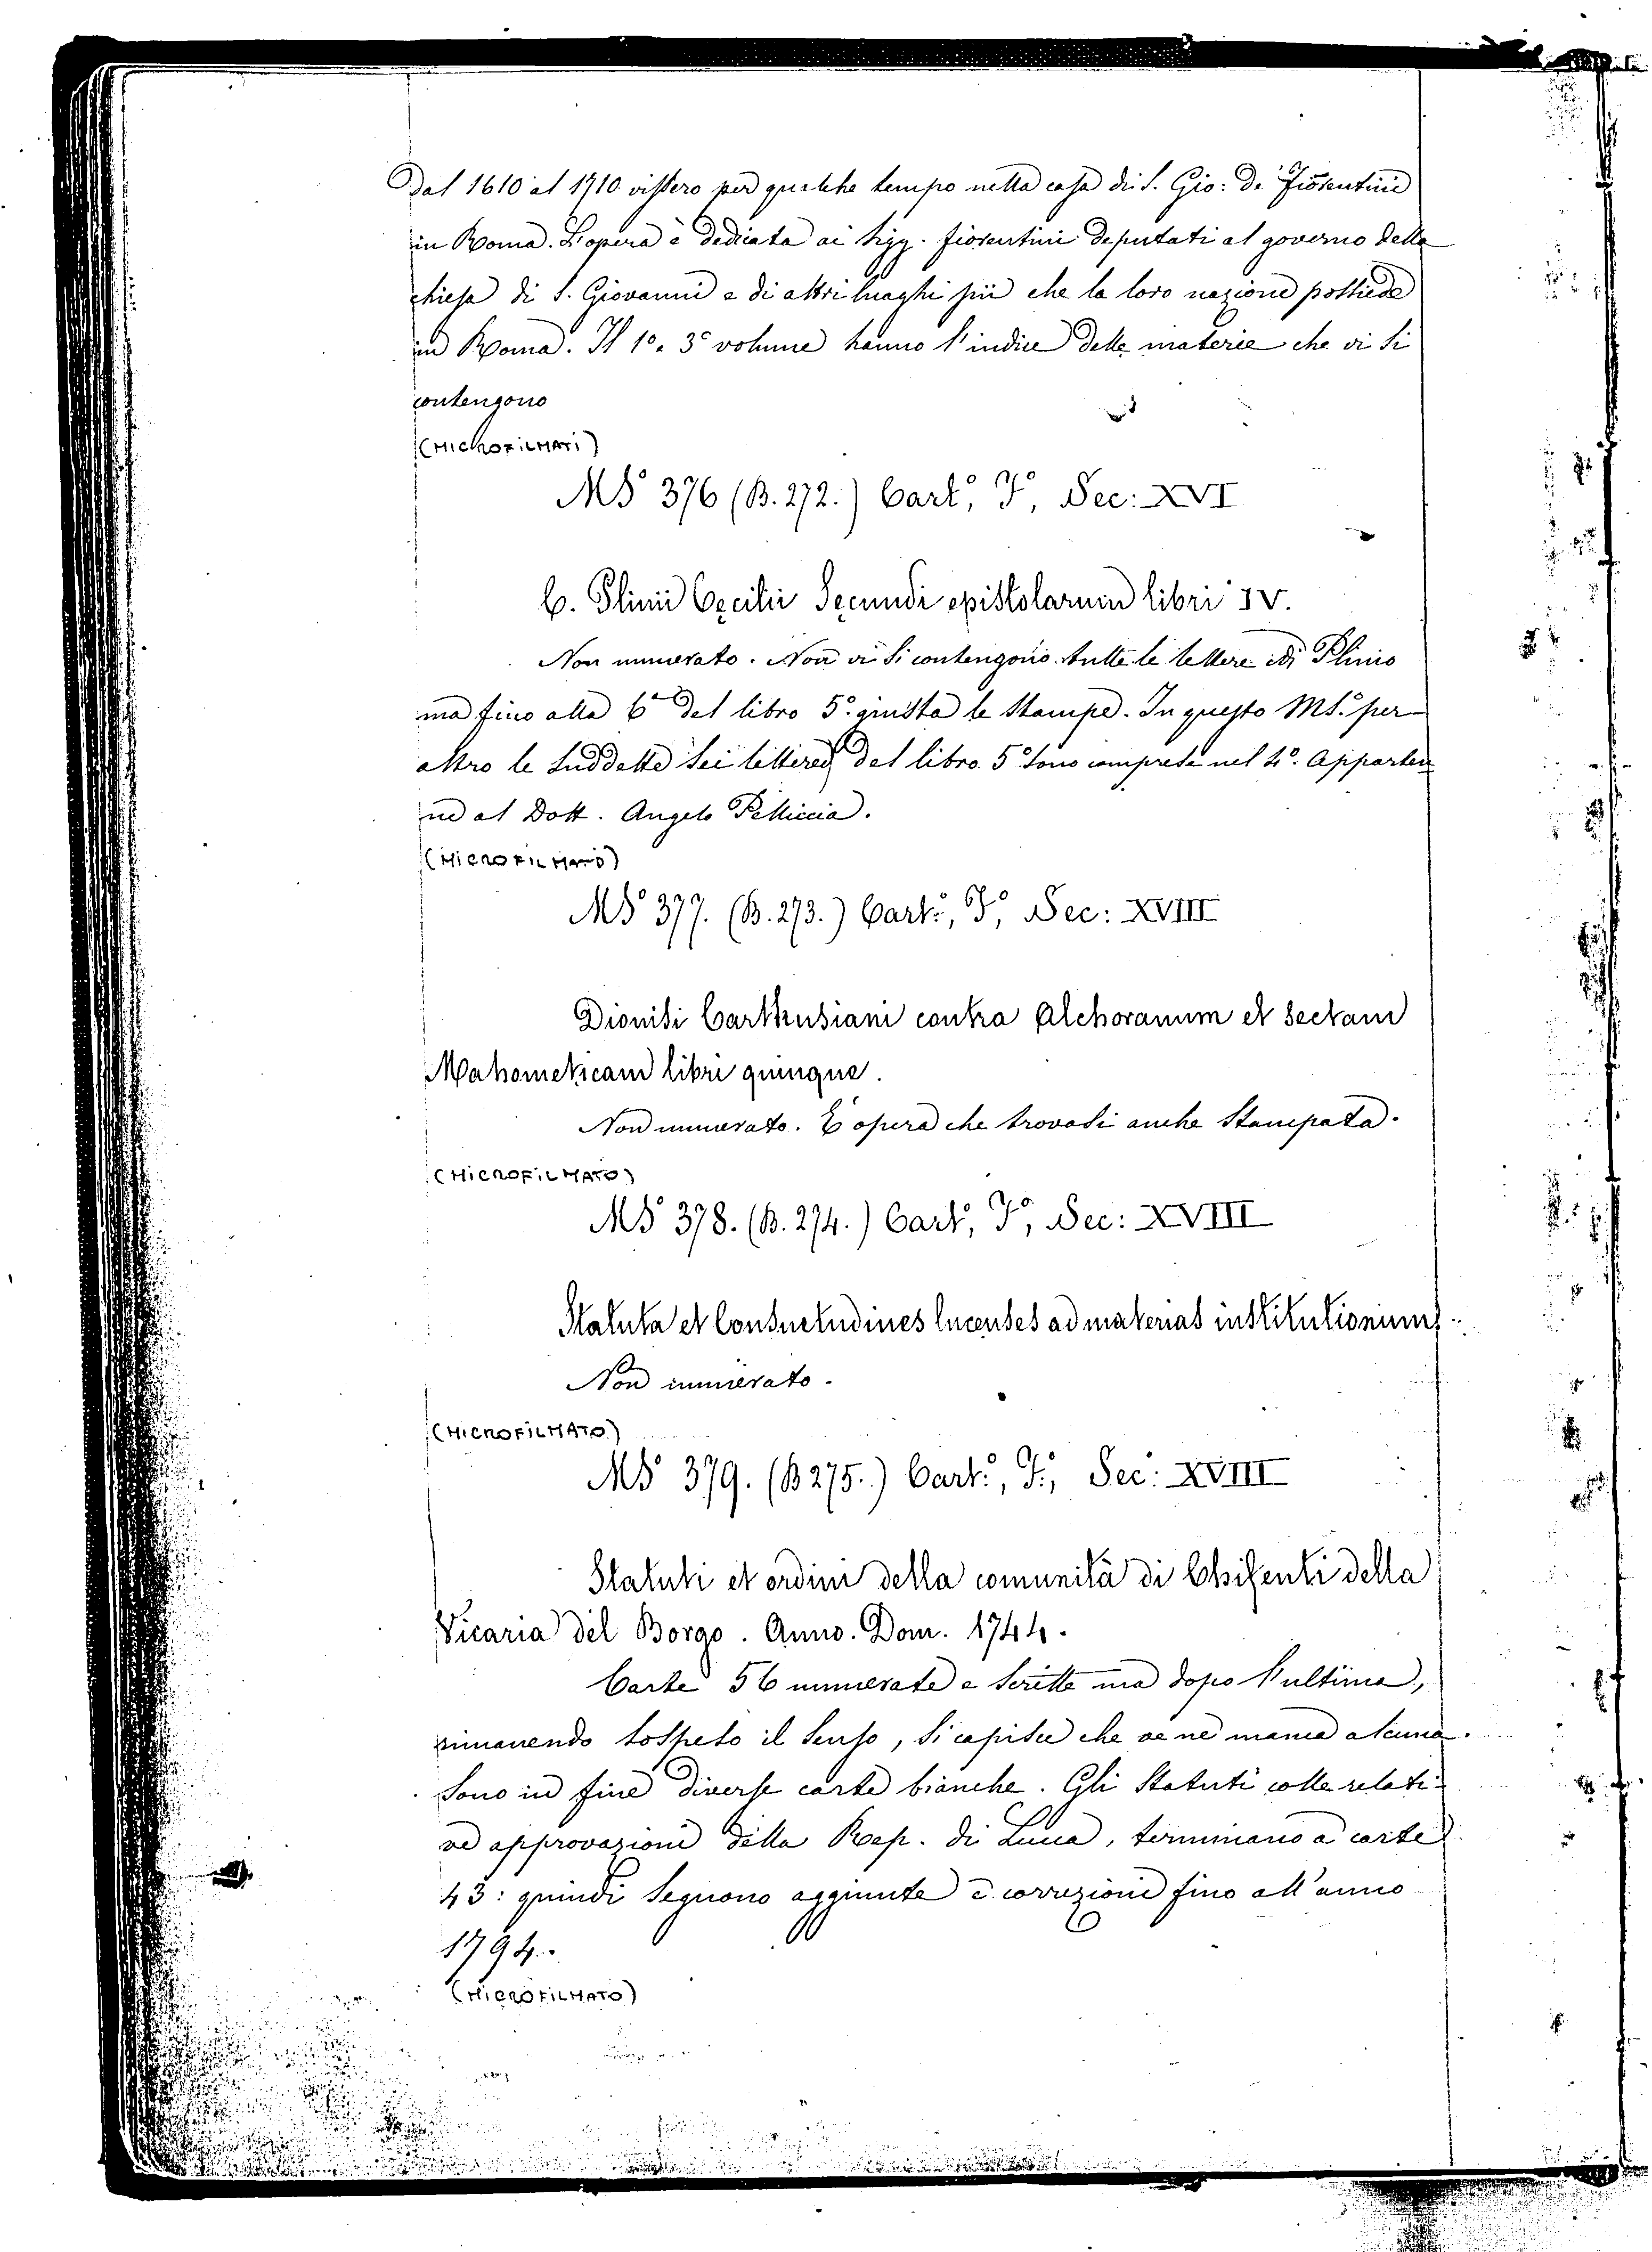 Dal 1610 al 1710 vissero per qualche tempo nella casa di S. Gio: de' Fiorentini
in Roma. L'opera è dedicata ai Sigg. fiorentini deputati al governo della
chiesa di S. Giovanni e di altri luoghi pii che la loro nazione possiede
in Roma. Il 1º e 3º volume hanno l'indice delle materie che vi si
contengono
(MICROFILMATI)
MS 376 (B. 272.) Cart.º, Fº, Sec: XVI
C. Plinii Cecilii Secundi epistolarum libri IV.
Non numerato. Non vi si contengono tutte le lettere di Plinio
ma fino alla 6ª del libro 5º giusta le stampe. In questo MS. per
altro le suddette sei lettere del libro 5º sono comprese nel 4º. Apparten
ne al Dott. Angelo Pelliccia.
(MICROFILMATO)
MS 377. (B. 273.) Cart.º, Fº, Sec: XVIII
Dionisi Carthusiani contra Alchoranum et sectam
Mahometicam libri quinque.
Non numerato. È opera che trovasi anche stampata.
(MICROFILMATO)
MS 378. (B. 274.) Cart.º, Fº, Sec: XVIII
Statuta et Consuetudines lucenses ad materias institutionum.
Non numerato.
(MICROFILMATO)
MS 379. (B 275.) Cart.º, Fº, Sec: XVIII
Statuti et ordini della comunità di Chifenti della
Vicaria del Borgo. Anno. Dom. 1744.
Carte 56 numerate e scritte ma dopo l'ultima,
rimanendo sospeso il senso, si capisce che ve ne manca alcuna.
Sono in fine diverse carte bianche. Gli Statuti colle relati-
ve approvazioni della Rep. di Lucca, terminano a carte
43: quindi seguono aggiunte e correzioni fino all'anno
1794.
(MICROFILMATO)